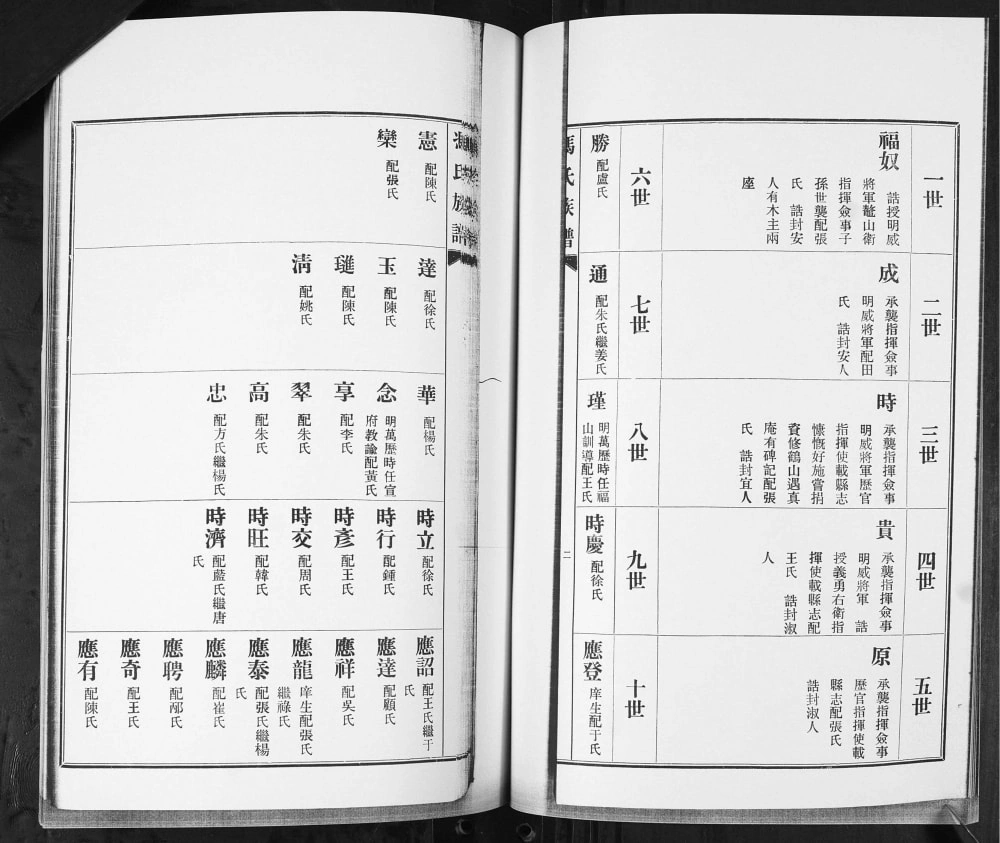 一世
福奴
誥授明威
將軍鼇山衛
指揮僉事子
孫世襲配張
氏 誥封安
人有木主兩
座
二世
成
承襲指揮僉事
明威將軍配田
氏 誥封安人
三世
時
承襲指揮僉事
明威將軍歷官
指揮使載縣志
慷慨好施嘗捐
資修鶴山遇真
庵有碑記配張
氏 誥封宜人
四世
貴
承襲指揮僉事
明威將軍 誥
授義勇右衛指
揮使載縣志配
王氏 誥封淑
人
五世
原
承襲指揮僉事
歷官指揮使載
縣志配張氏
誥封淑人
六世
勝
配盧氏
七世
通
配朱氏繼姜氏
八世
瑾
明萬歷時任福
山訓導配王氏
九世
時慶
配徐氏
十世
應登
庠生配于氏
馮氏族譜
二
馮氏族譜
憲
配陳氏
欒
配張氏
達
配徐氏
玉
配陳氏
璡
配陳氏
清
配姚氏
華
配楊氏
念
明萬歷時任宣
府教諭配黃氏
享
配李氏
翠
配朱氏
高
配朱氏
忠
配方氏繼楊氏
時立
配徐氏
時行
配鍾氏
時彥
配王氏
時交
配周氏
時旺
配韓氏
時濟
配藍氏繼唐
氏
應詔
配王氏繼于
氏
應達
配顧氏
應祥
配吳氏
應龍
庠生配張氏
繼祿氏
應泰
配張氏繼楊
氏
應麟
配崔氏
應聘
配邴氏
應奇
配王氏
應有
配陳氏